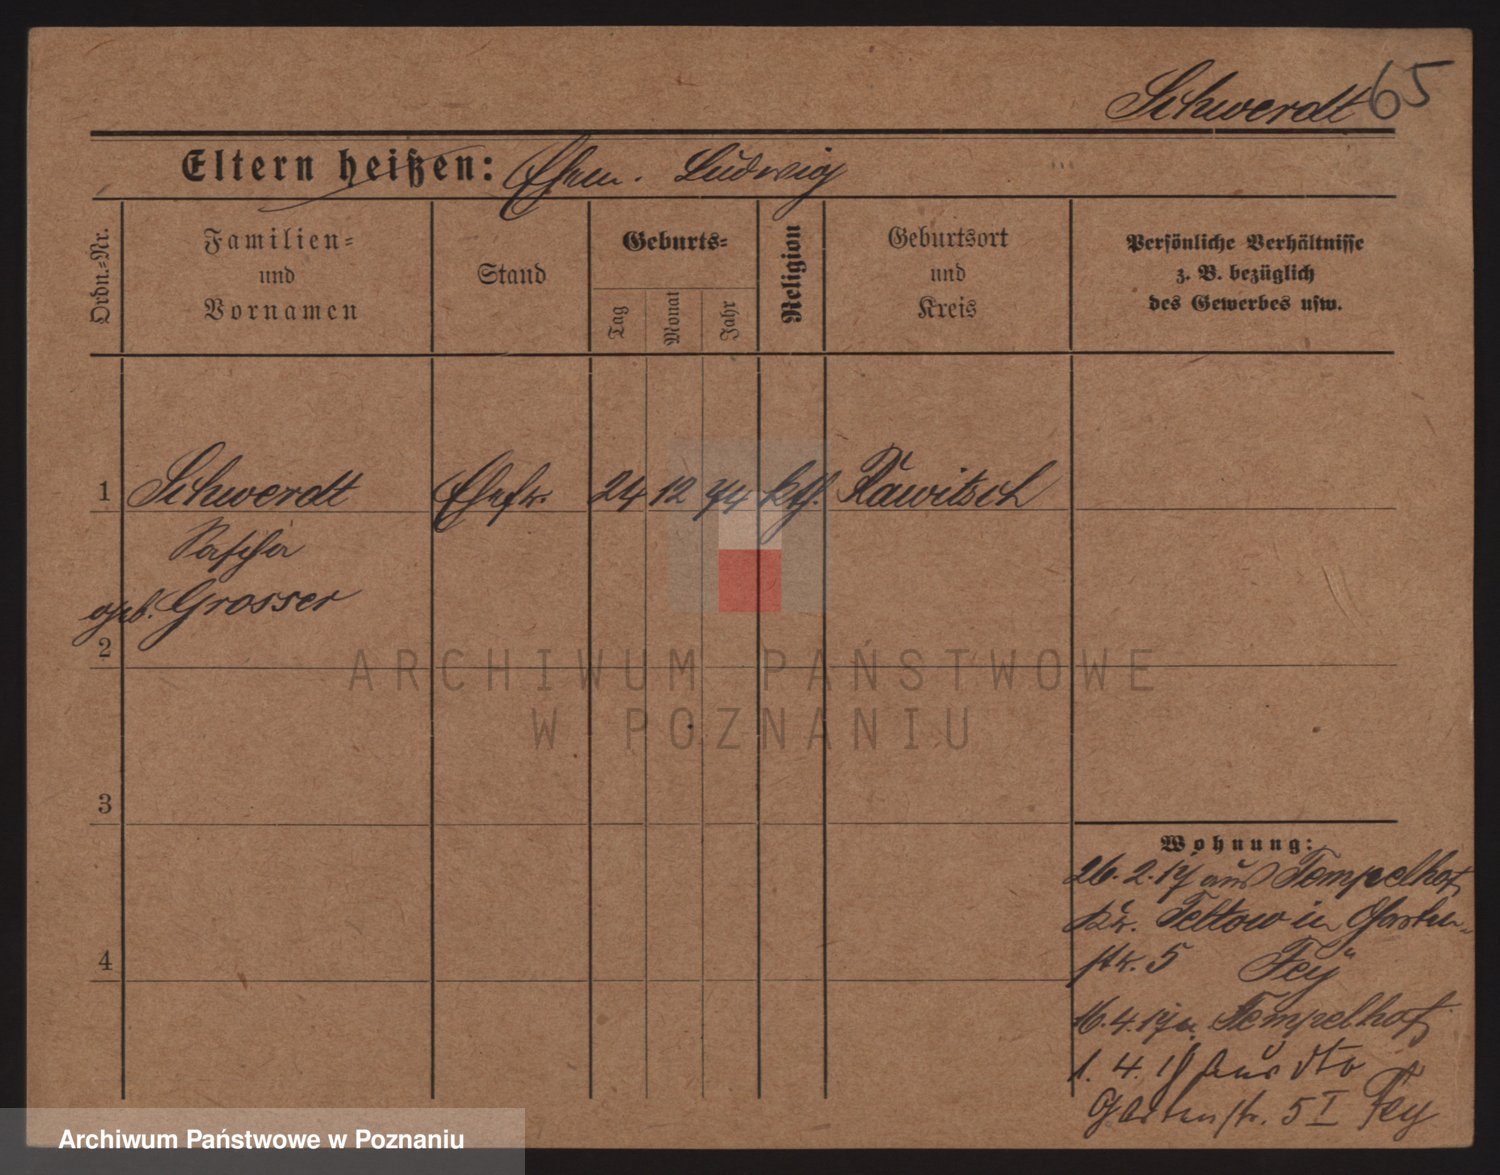 Schwerdt 65
Eltern heißen: Ehem. Ludwig
Ordn.-Nr.
Familien-
und
Vornamen
Stand
Geburts-
Tag
Monat
Jahr
Religion
Geburtsort
und
Kreis
Persönliche Verhältnisse
z. B. bezüglich
des Gewerbes usw.
1 Schwerdt Ehefr. 24 12 74 ktl. Rawitsch
geb. Grosser
2
3
4
Wohnung:
26. 2. 17 aus Tempelhof
Kr. Teltow in Garten-
str. 5 Fey
16. 4. 17 n. Tempelhof
1. 4. aus dto
Gartenstr. 5 I Fey
ARCHIWUM PAŃSTWOWE
W POZNANIU
Archiwum Państwowe w Poznaniu